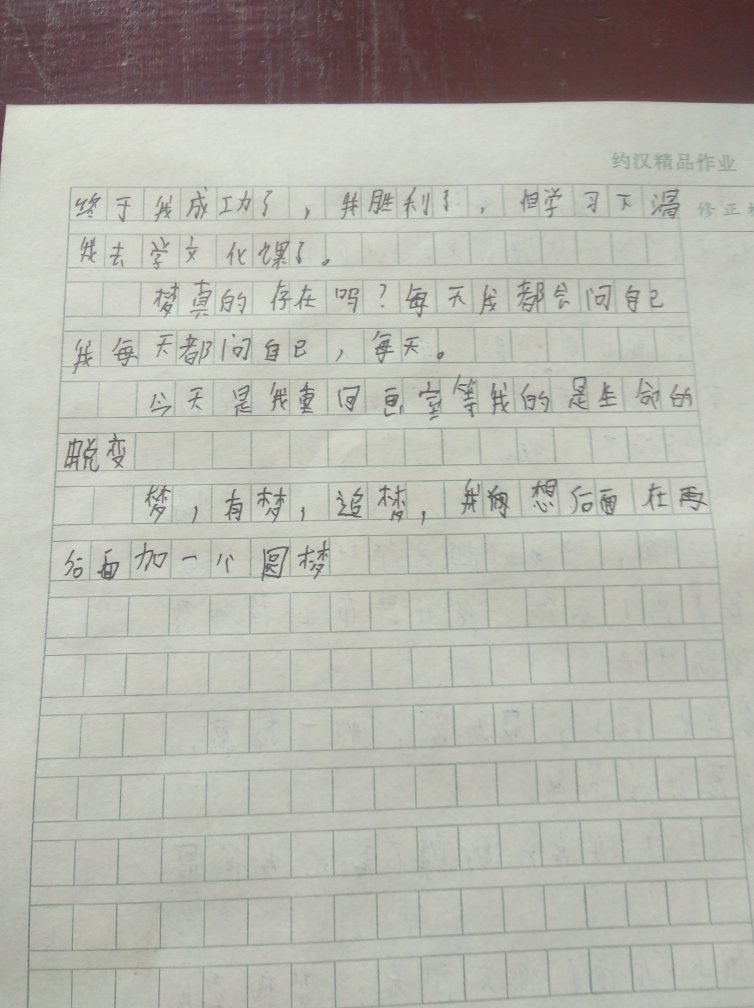 约汉精品作业
终于我成功了，我胜利了，但学习下滑
修正
我去学文化课了。
梦真的存在吗？每天我都会问自己
我每天都问自己，每天。
今天是我重回画室等我的是生命的
脱变
梦，有梦，追梦，我想后面在再
后面加一个圆梦